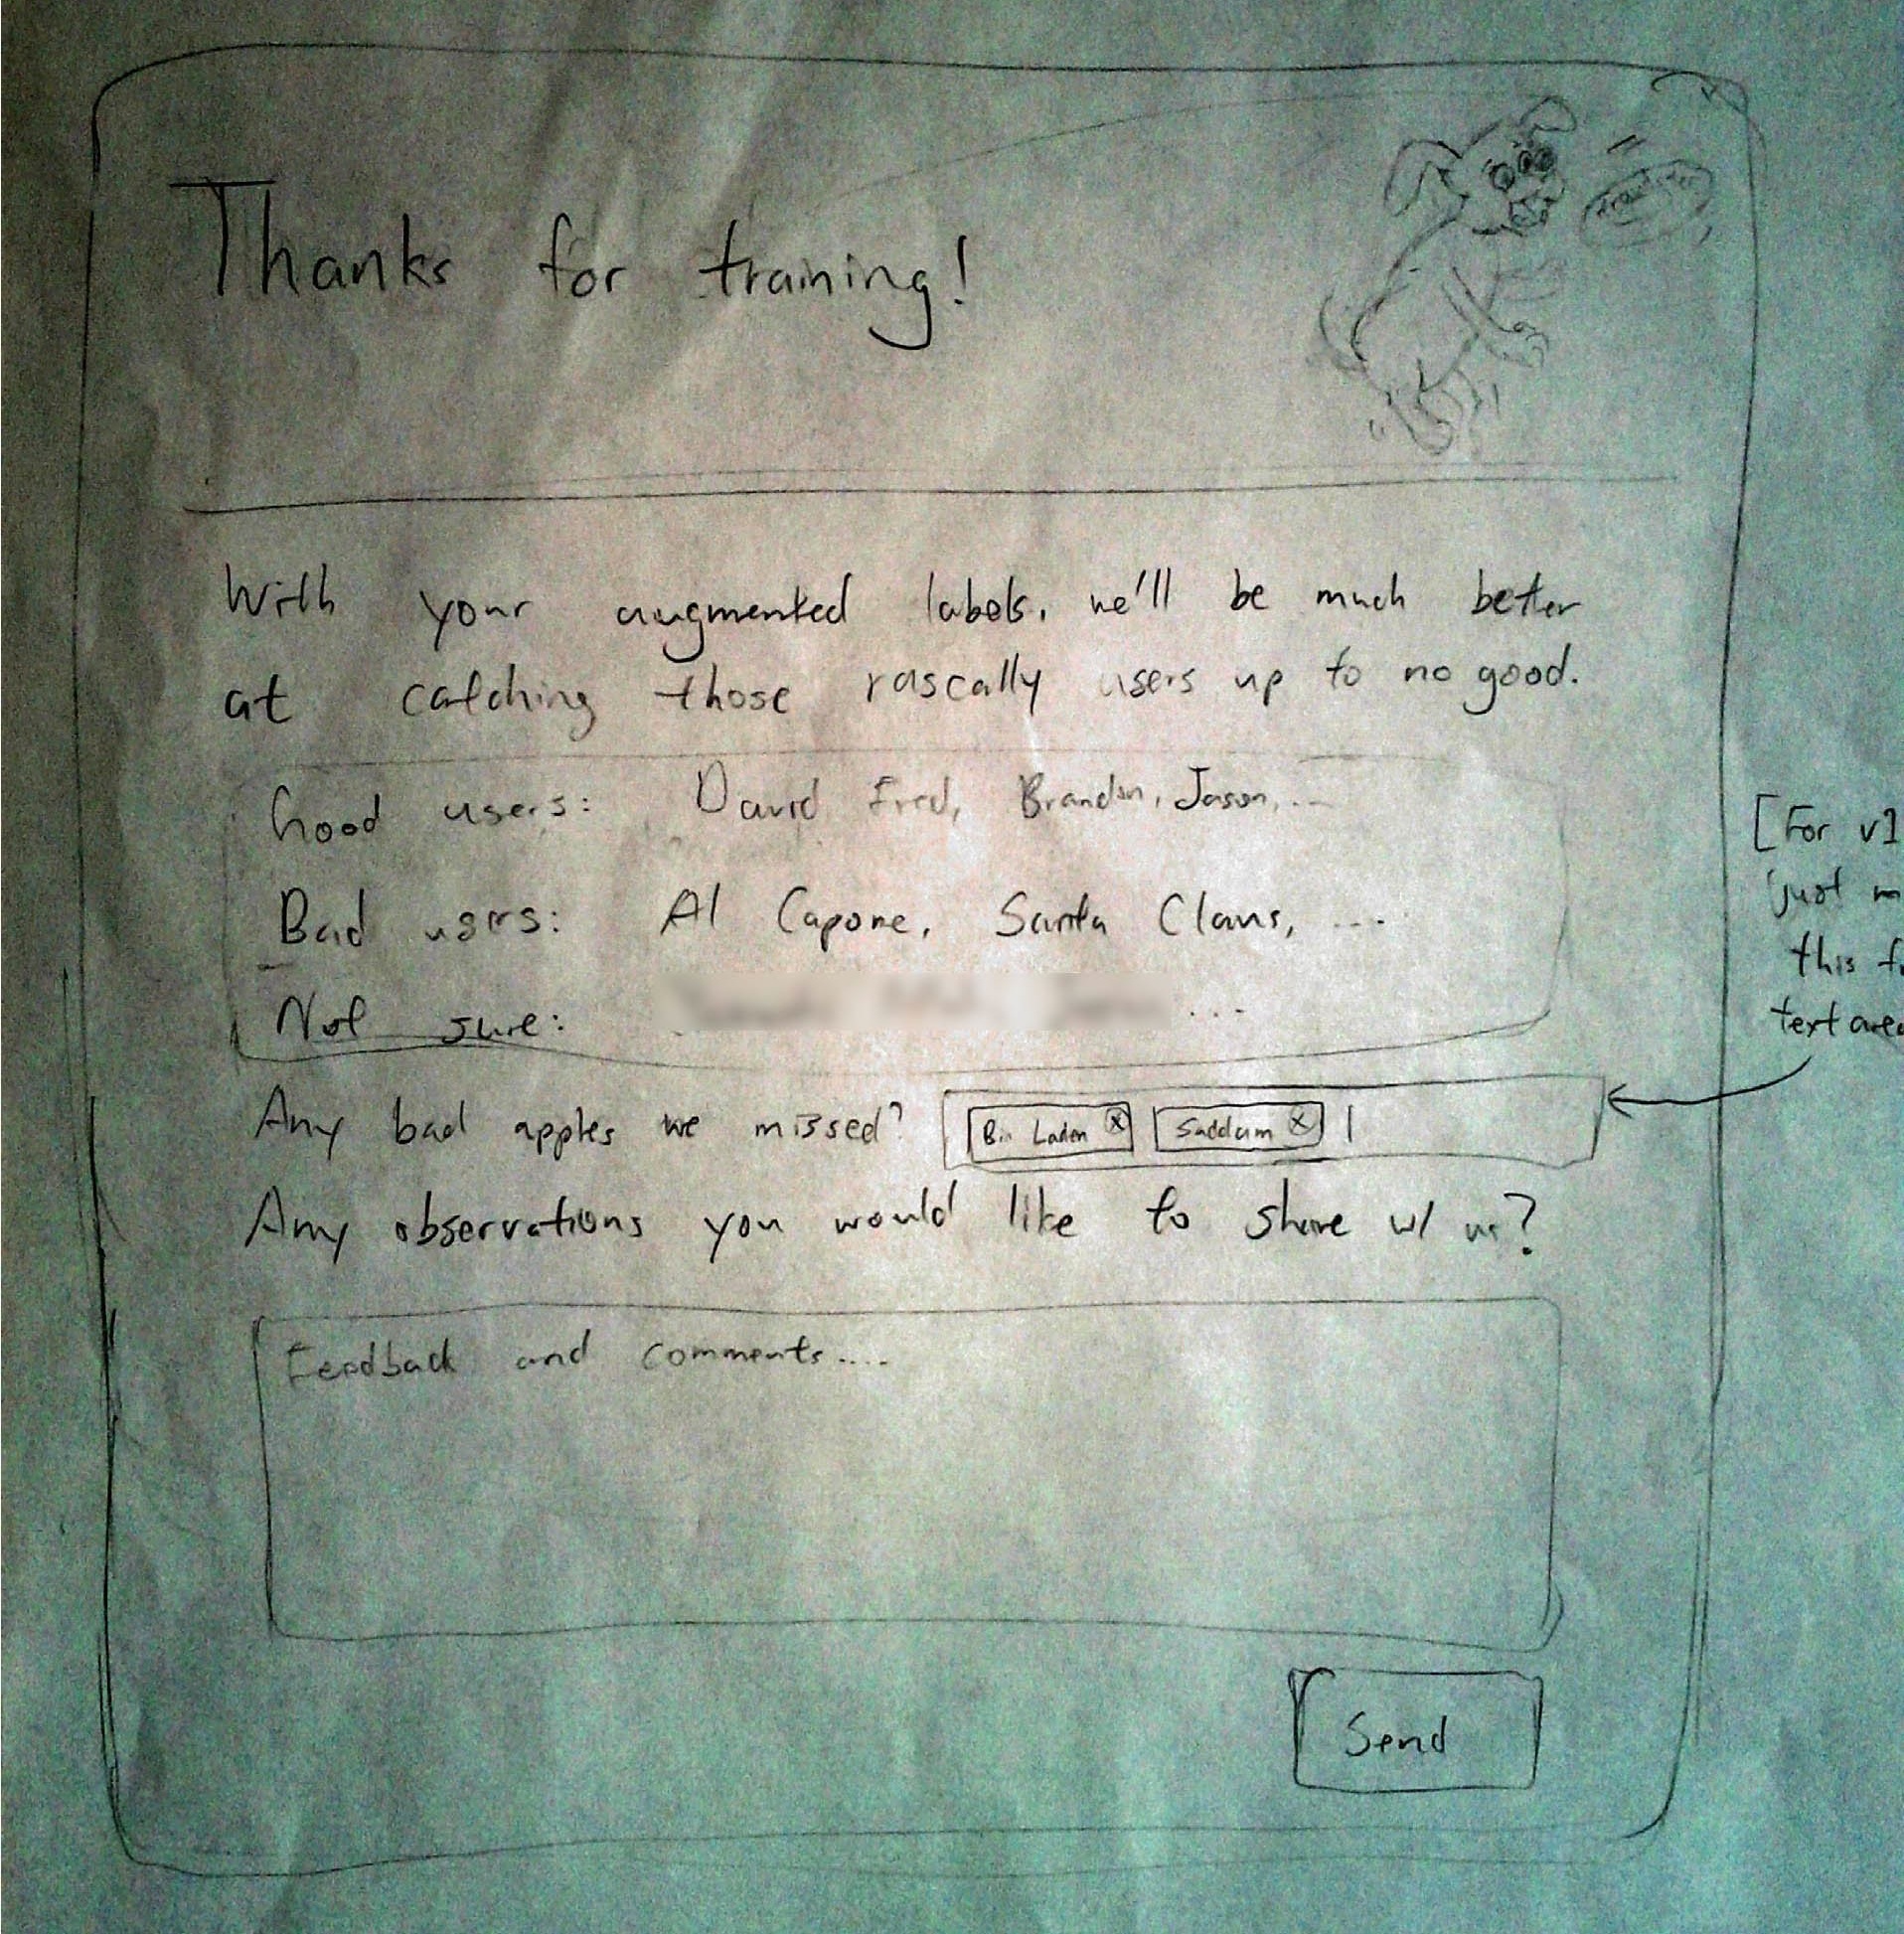 Thanks for training!
With your augmented labels, we'll be much better
at catching those rascally users up to no good.
Good users: David Fred, Brandon, Jason, ...
Bad users: Al Capone, Santa Claus, ...
Not sure: ...
Any bad apples we missed? Bin Laden x Saddam x
Any observations you would like to share w/ us?
Feedback and comments....
Send
[For v1
just
this
text area